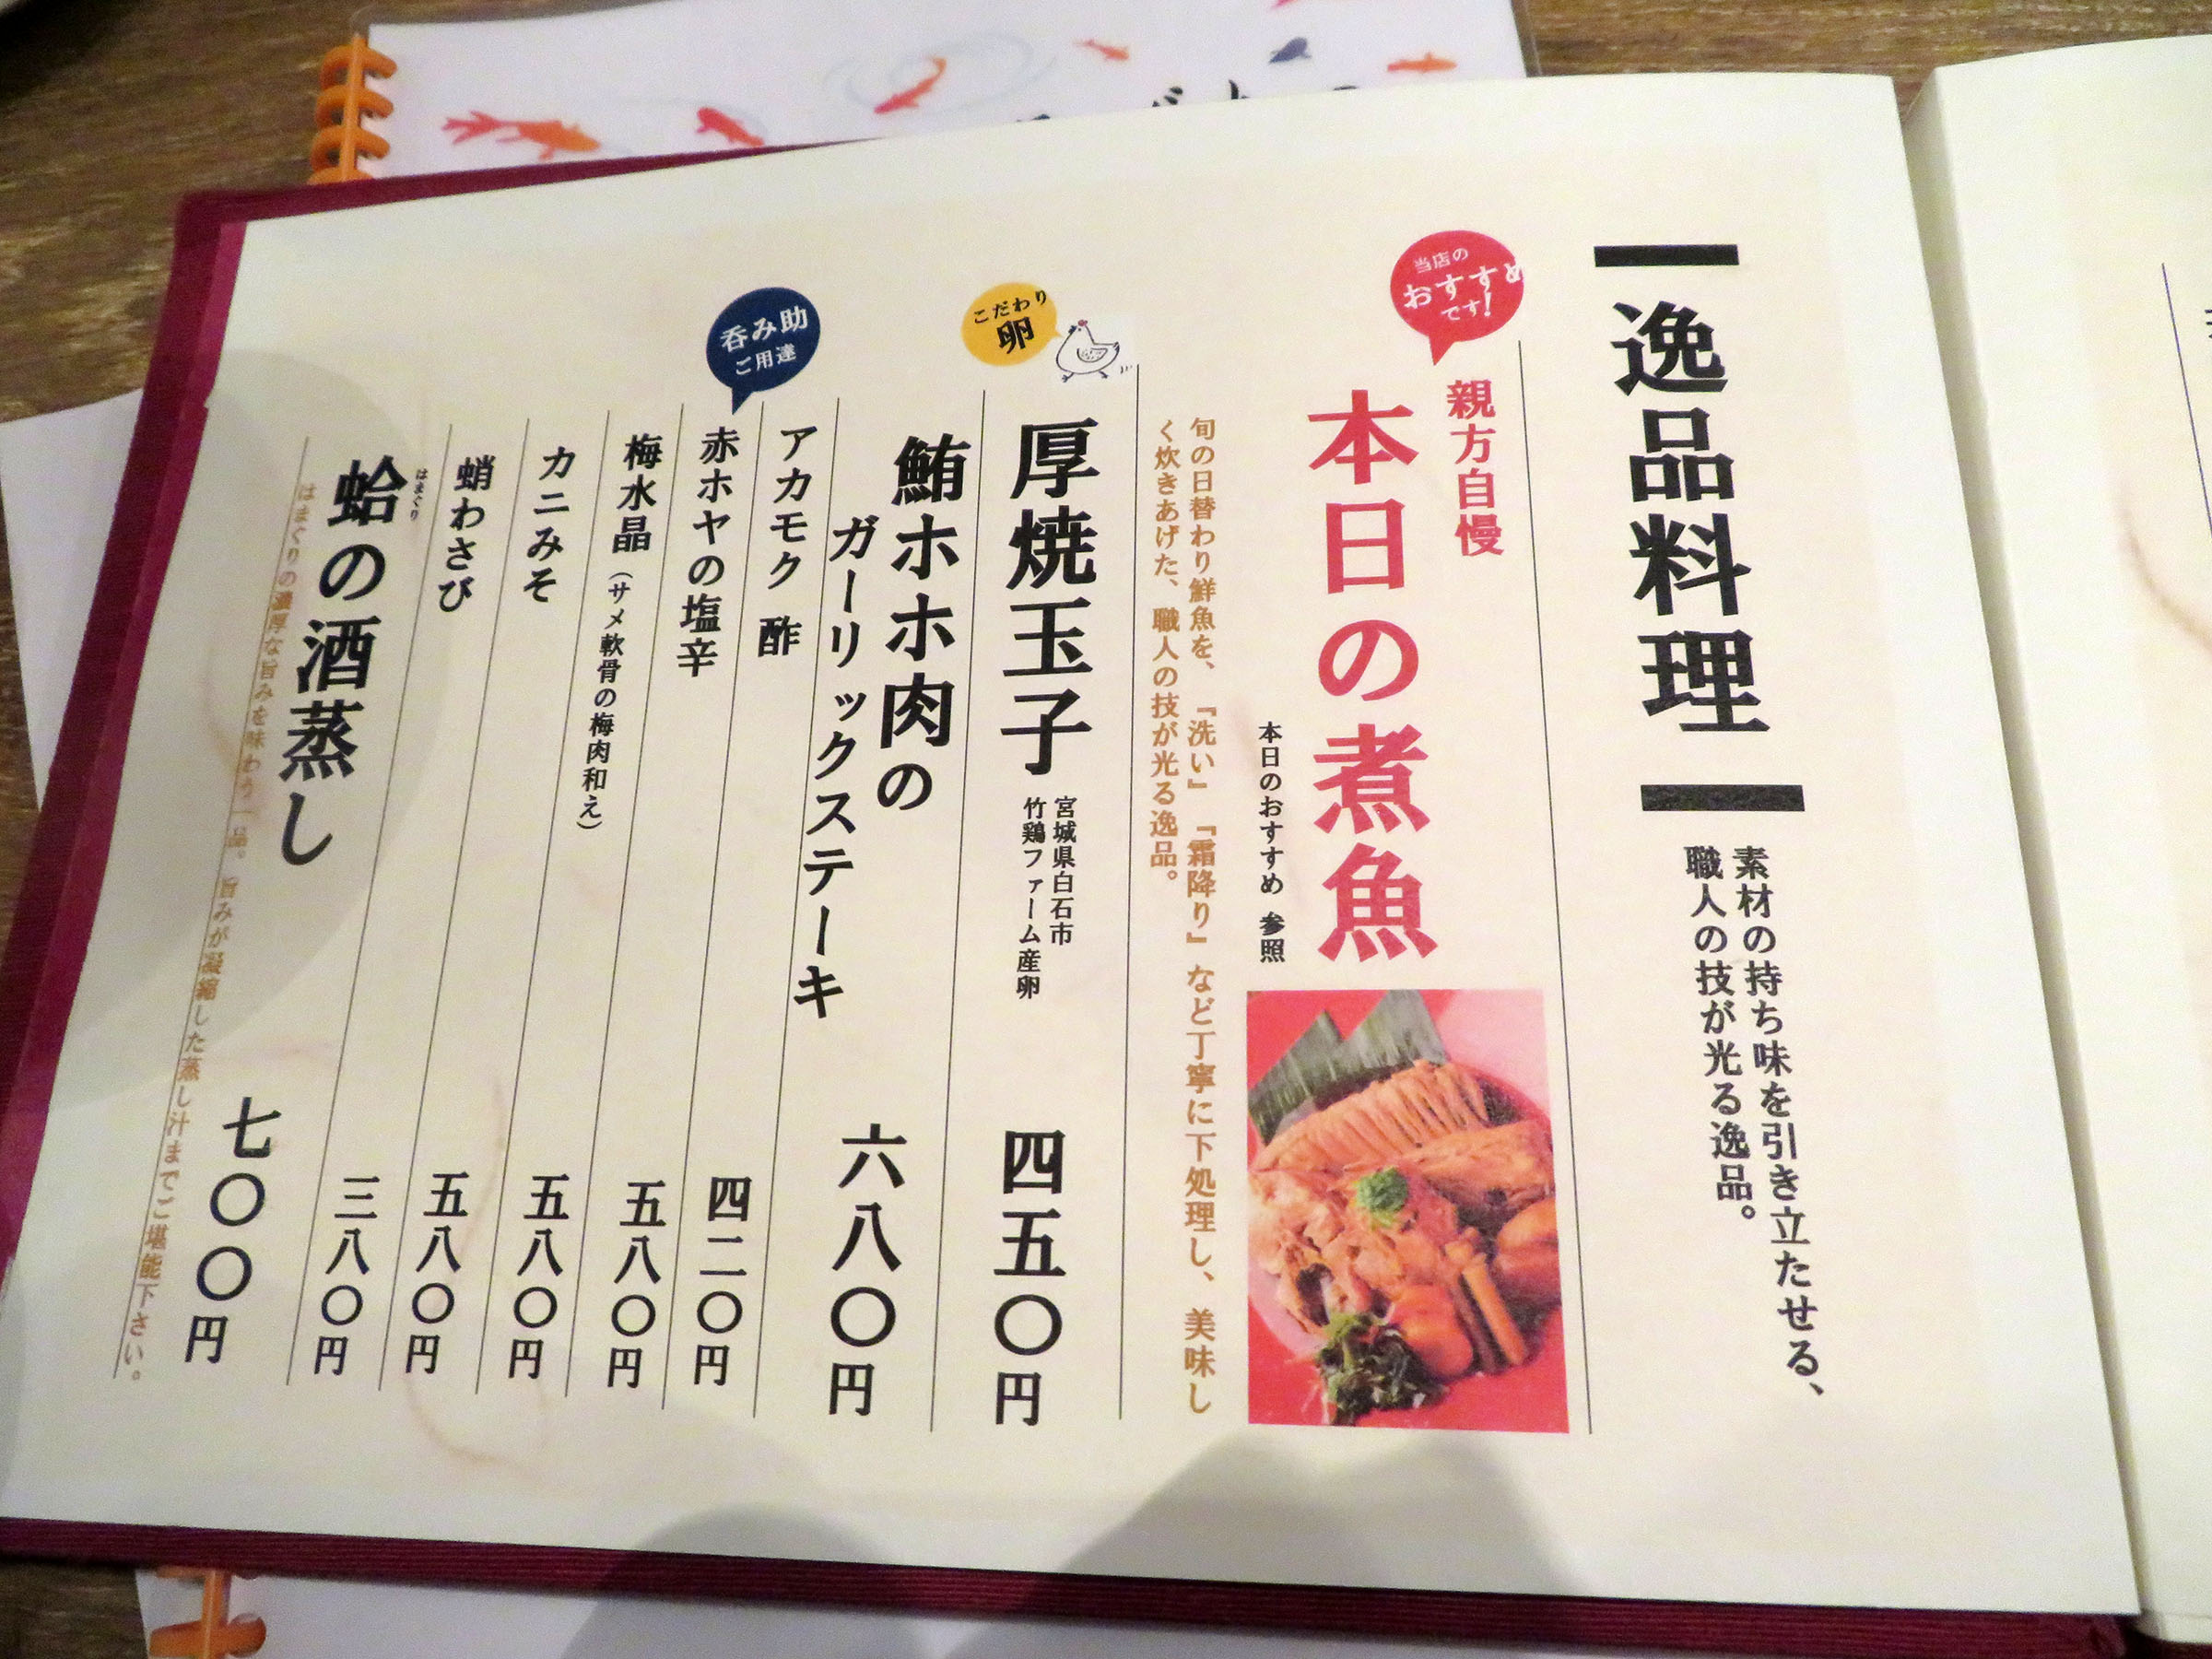 逸品料理
素材の持ち味を引き立たせる、
職人の技が光る逸品。
当店の
おすすめ
です!
親方自慢
本日の煮魚
本日のおすすめ 参照
旬の日替わり鮮魚を、『洗い』『霜降り』など丁寧に下処理し、美味し
く炊きあげた、職人の技が光る逸品。
こだわり
卵
厚焼玉子
宮城県白石市
竹鶏ファーム産卵
四五〇円
鮪ホホ肉の
ガーリックステーキ
六八〇円
呑み助
ご用達
アカモク 酢
四二〇円
赤ホヤの塩辛
五八〇円
梅水晶(サメ軟骨の梅肉和え)
五八〇円
カニみそ
五八〇円
蛸わさび
三八〇円
はまぐり
蛤の酒蒸し
七〇〇円
はまぐりの濃厚な旨みを味わう一品。旨みが凝縮した蒸し汁までご堪能下さい。